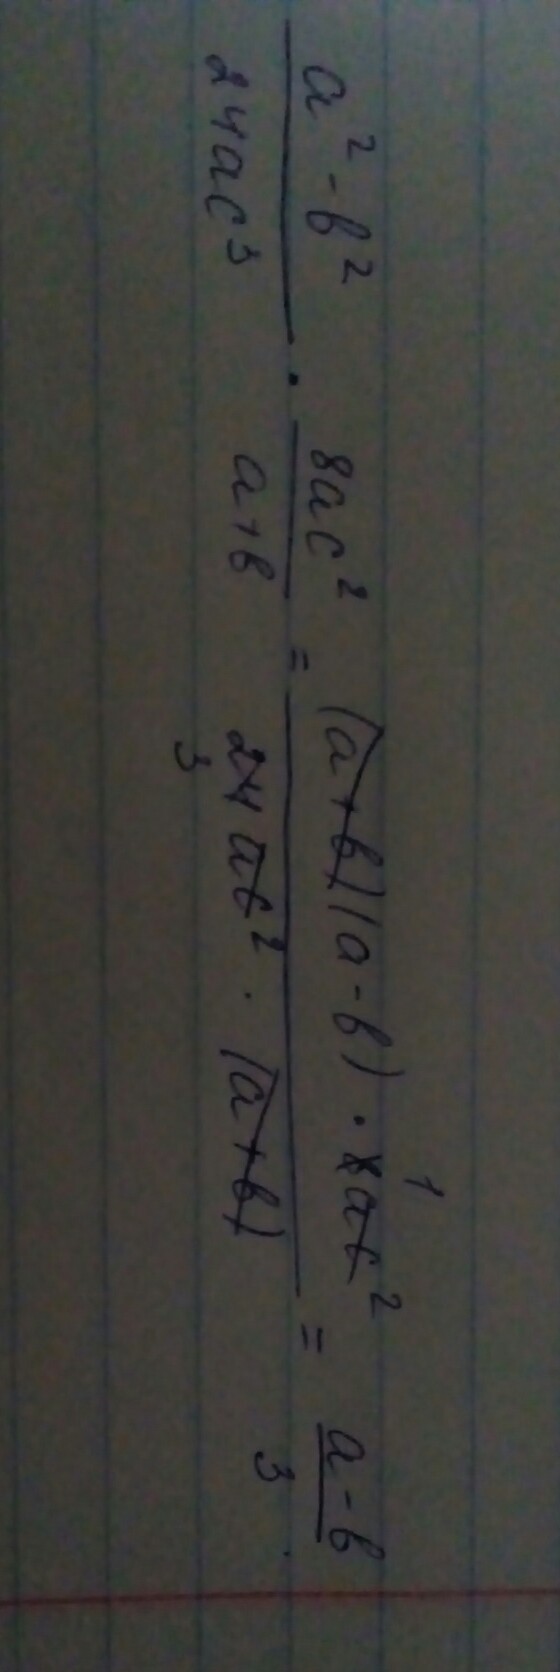 a² - b² / 24ac³ · 8ac² / a+b = (a+b)(a-b) · 8ac² / 24ac² · (a+b) = a-b / 3
1
3